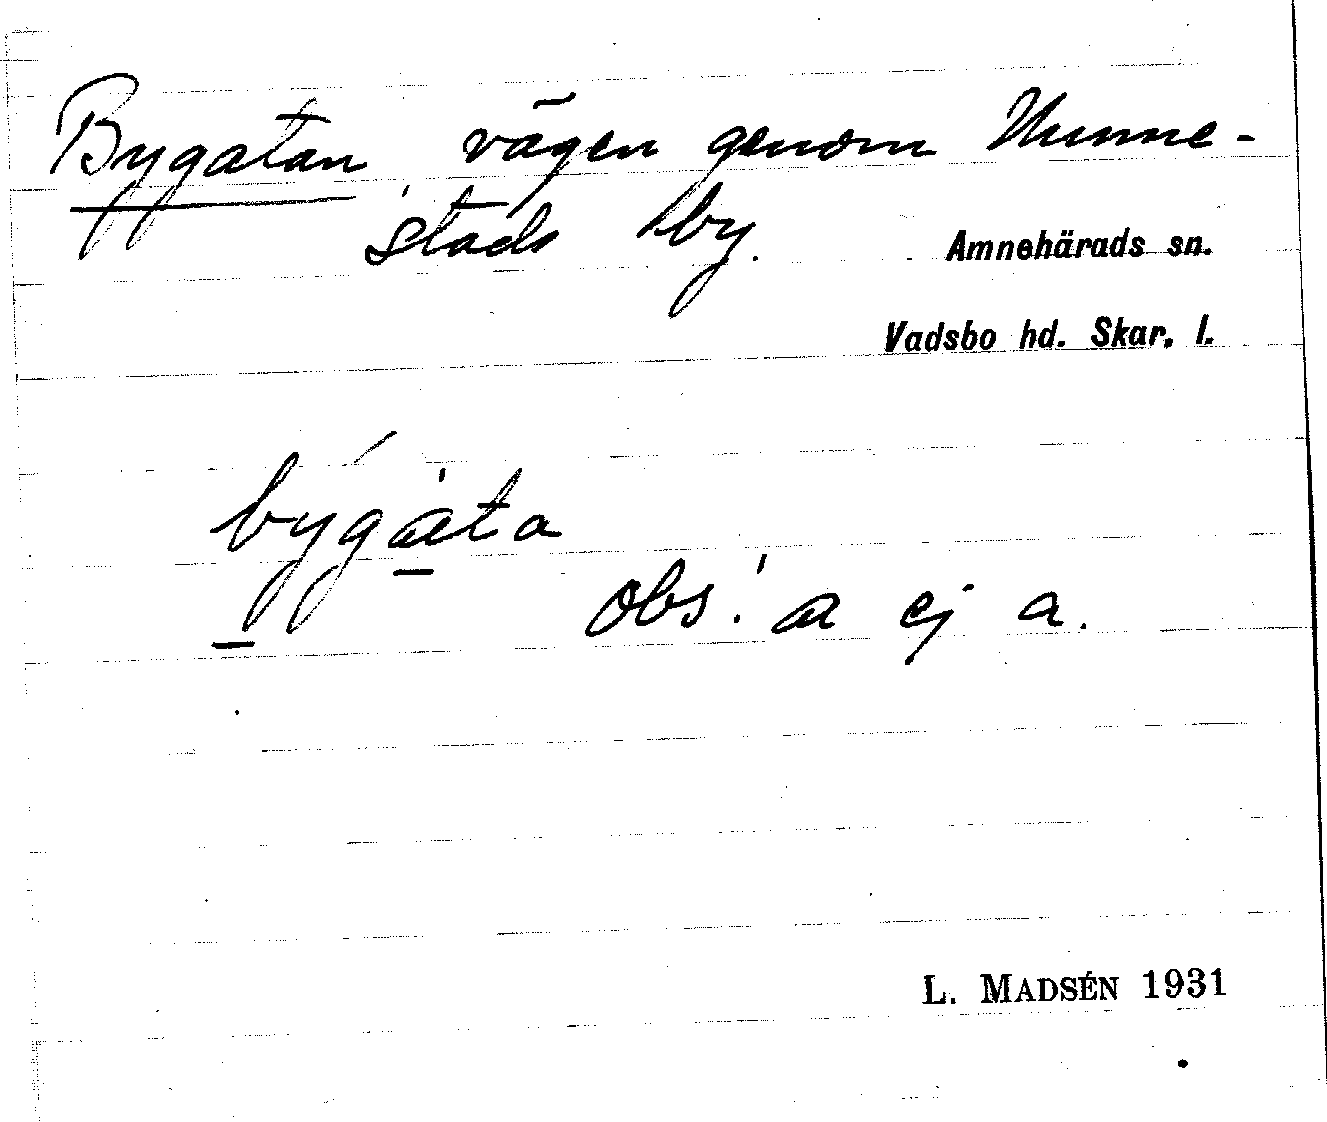 Bygatan, vägen genom Nunne-
stads by.
Amnehärads sn.
Vadsbo hd. Skar. l.
býgàta
obs! a ej a.
L. MADSÉN 1931